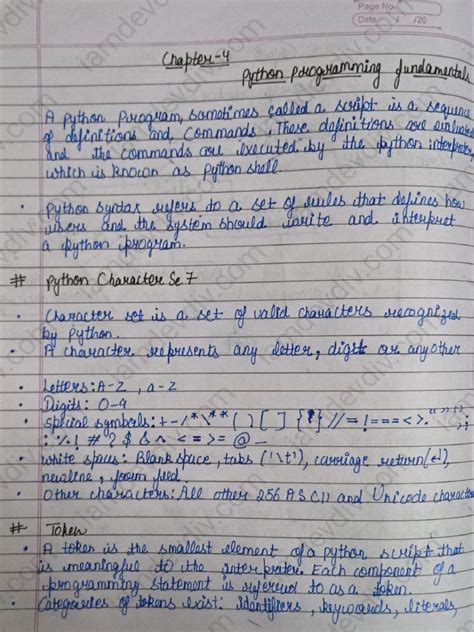 Page No.
Date / /20
Chapter-4
Python programming fundamentals
A Python Program, sometimes called a script is a sequence
of definitions and commands. These definitions are evaluated
and the commands are executed by the python interpreter
which is known as Python shell.
• Python syntax refers to a set of rules that defines how
users and the system should write and interpret
a python program.
# Python Character Set
• Character set is a set of valid characters recognized
by Python.
• A character represents any letter, digit or any other
• Letters: A-Z, a-z
• Digits: 0-9
• Special symbols: + - / * \ ** ( ) [ ] { } // = ! = == < > . " ''
: % ! # ? $ & ^ < = > = @ _
• White spaces: Blank space, tabs ('\t'), carriage return (↵),
newline, form feed
• Other characters: All other 256 ASCII and Unicode character
# Token
• A token is the smallest element of a python script that
is meaningful to the interpreter. Each component of a
programming statement is referred to as a token.
• Categories of tokens exist: identifiers, keywords, literals
iamdevdiv.com